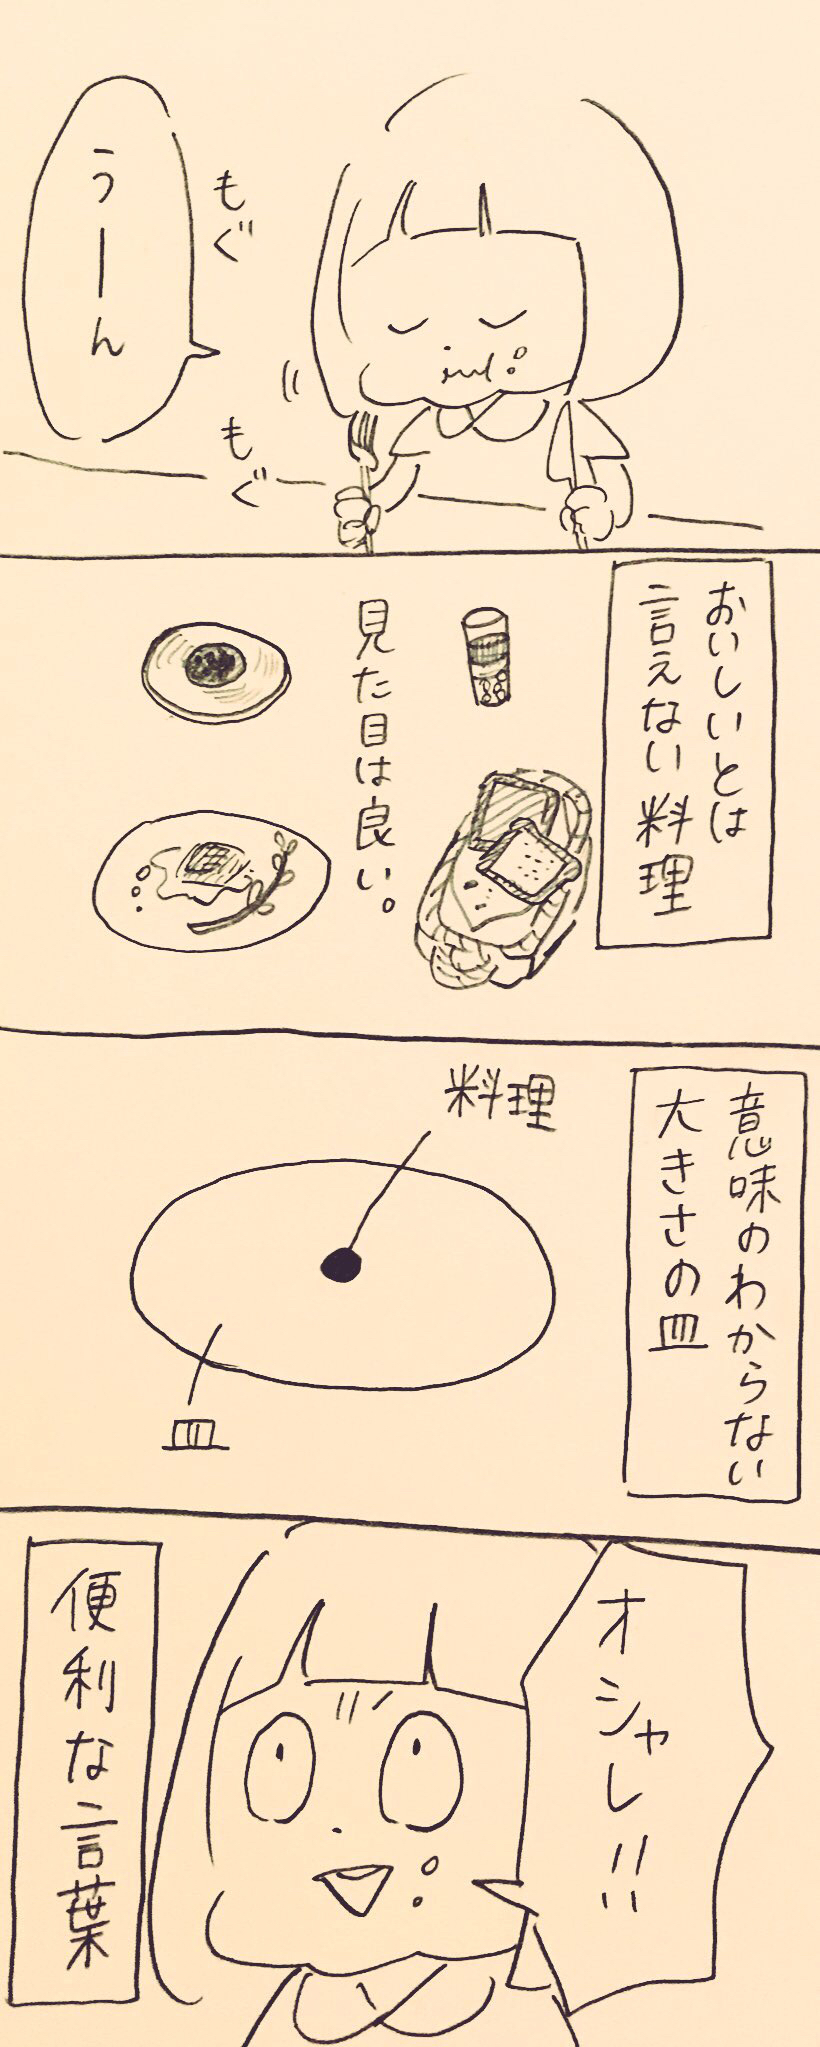 もぐ
もぐ
うーん
おいしいとは
言えない料理
見た目は良い。
意味のわからない
大きさの皿
料理
皿
オシャレ!!
便利な言葉